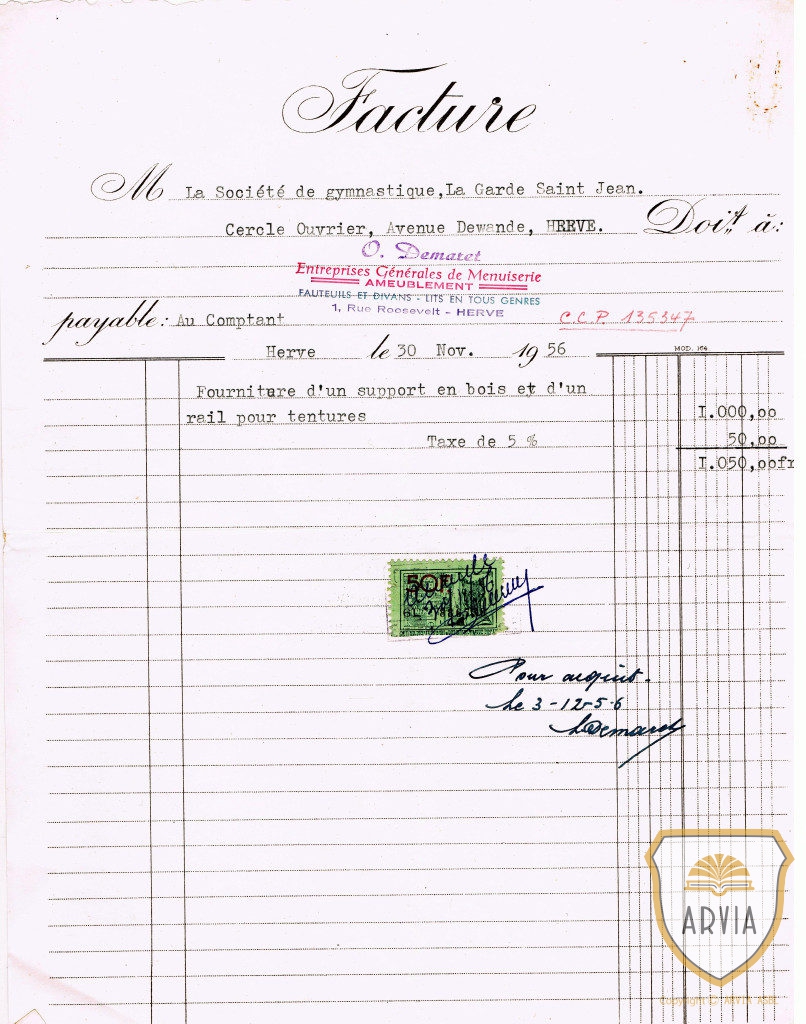 Facture
M La Société de gymnastique, La Garde Saint Jean.
Cercle Ouvrier, Avenue Dewande, HERVE. Doit à:
O. Demaret
Entreprises Générales de Menuiserie
AMEUBLEMENT
FAUTEUILS ET DIVANS - LITS EN TOUS GENRES
1, Rue Roosevelt - HERVE
payable: Au Comptant C.C.P. 135347
Herve le 30 Nov. 19 56
MOD. 164
Fourniture d'un support en bois et d'un
rail pour tentures I.000,oo
Taxe de 5 % 50,oo
I.050,oofr
50F
Pour acquit.
Le 3-12-56
Demaret
ARVIA
Copyright © ARVIA ASBL